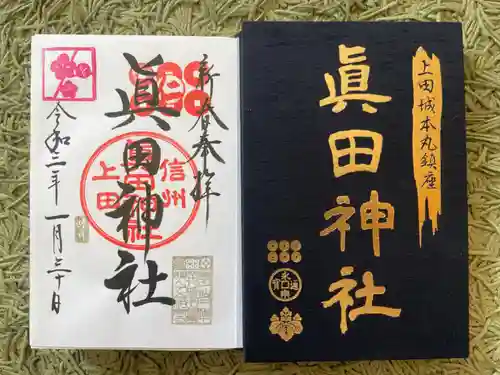 新春奉拝
眞田神社
信州
上田
令和三年一月三十日
上田城本丸鎮座
眞田神社